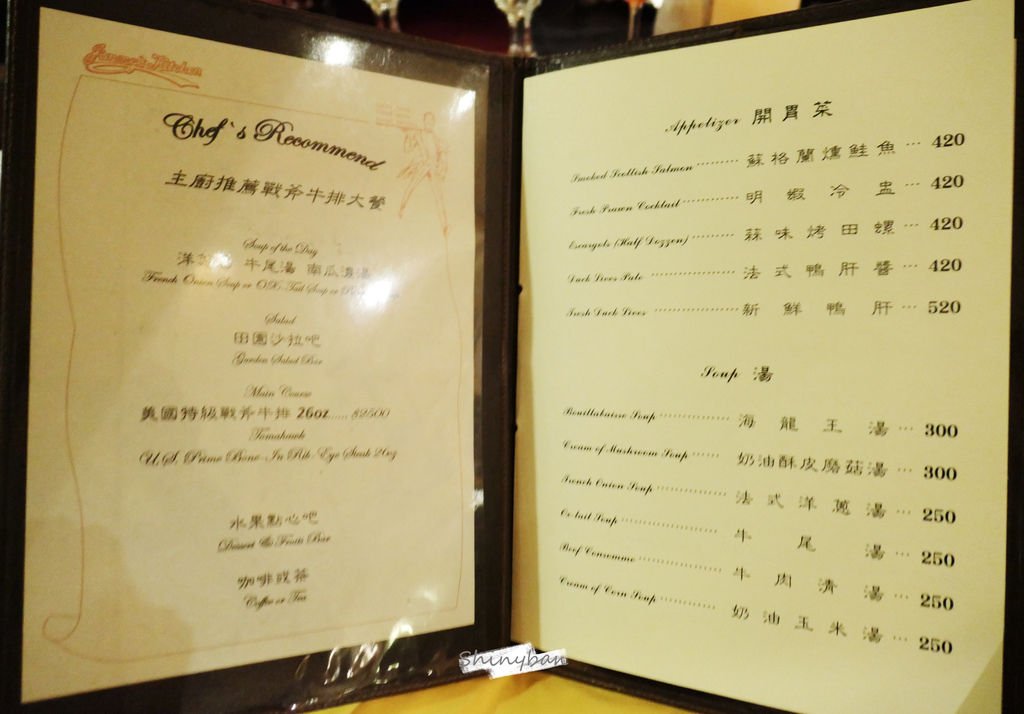 Jimmy's Kitchen
Chef's Recommend
主廚推薦戰斧牛排大餐
Soup of the Day
牛尾湯 南瓜濃湯
French Onion Soup or OX-Tail Soup or
Salad
田園沙拉吧
Garden Salad Bar
Main Course
美國特級戰斧牛排 26oz...... $2500
Tomahawk
U.S. Prime Bone-In Rib-Eye Steak 26oz
水果點心吧
Dessert & Fruits Bar
咖啡或茶
Coffee or Tea
Appetizer 開胃菜
Smoked Scottish Salmon ········· 蘇格蘭燻鮭魚 ··· 420
Fresh Prawn Cocktail ········· 明蝦冷盅 ··· 420
Escargots (Half Dozzen) ········· 蒜味烤田螺 ··· 420
Duck Liver Pate ················· 法式鴨肝醬 ··· 420
Fresh Duck Liver ················ 新鮮鴨肝 ··· 520
Soup 湯
Bouillabaisse Soup ··············· 海龍王湯 ··· 300
Cream of Mushroom Soup ······ 奶油酥皮磨菇湯 ··· 300
French Onion Soup ··············· 法式洋蔥湯 ··· 250
Ox-tail Soup ····················· 牛尾湯 ··· 250
Beef Consomme ·················· 牛肉清湯 ··· 250
Cream of Corn Soup ············· 奶油玉米湯 ··· 250
Shinyban